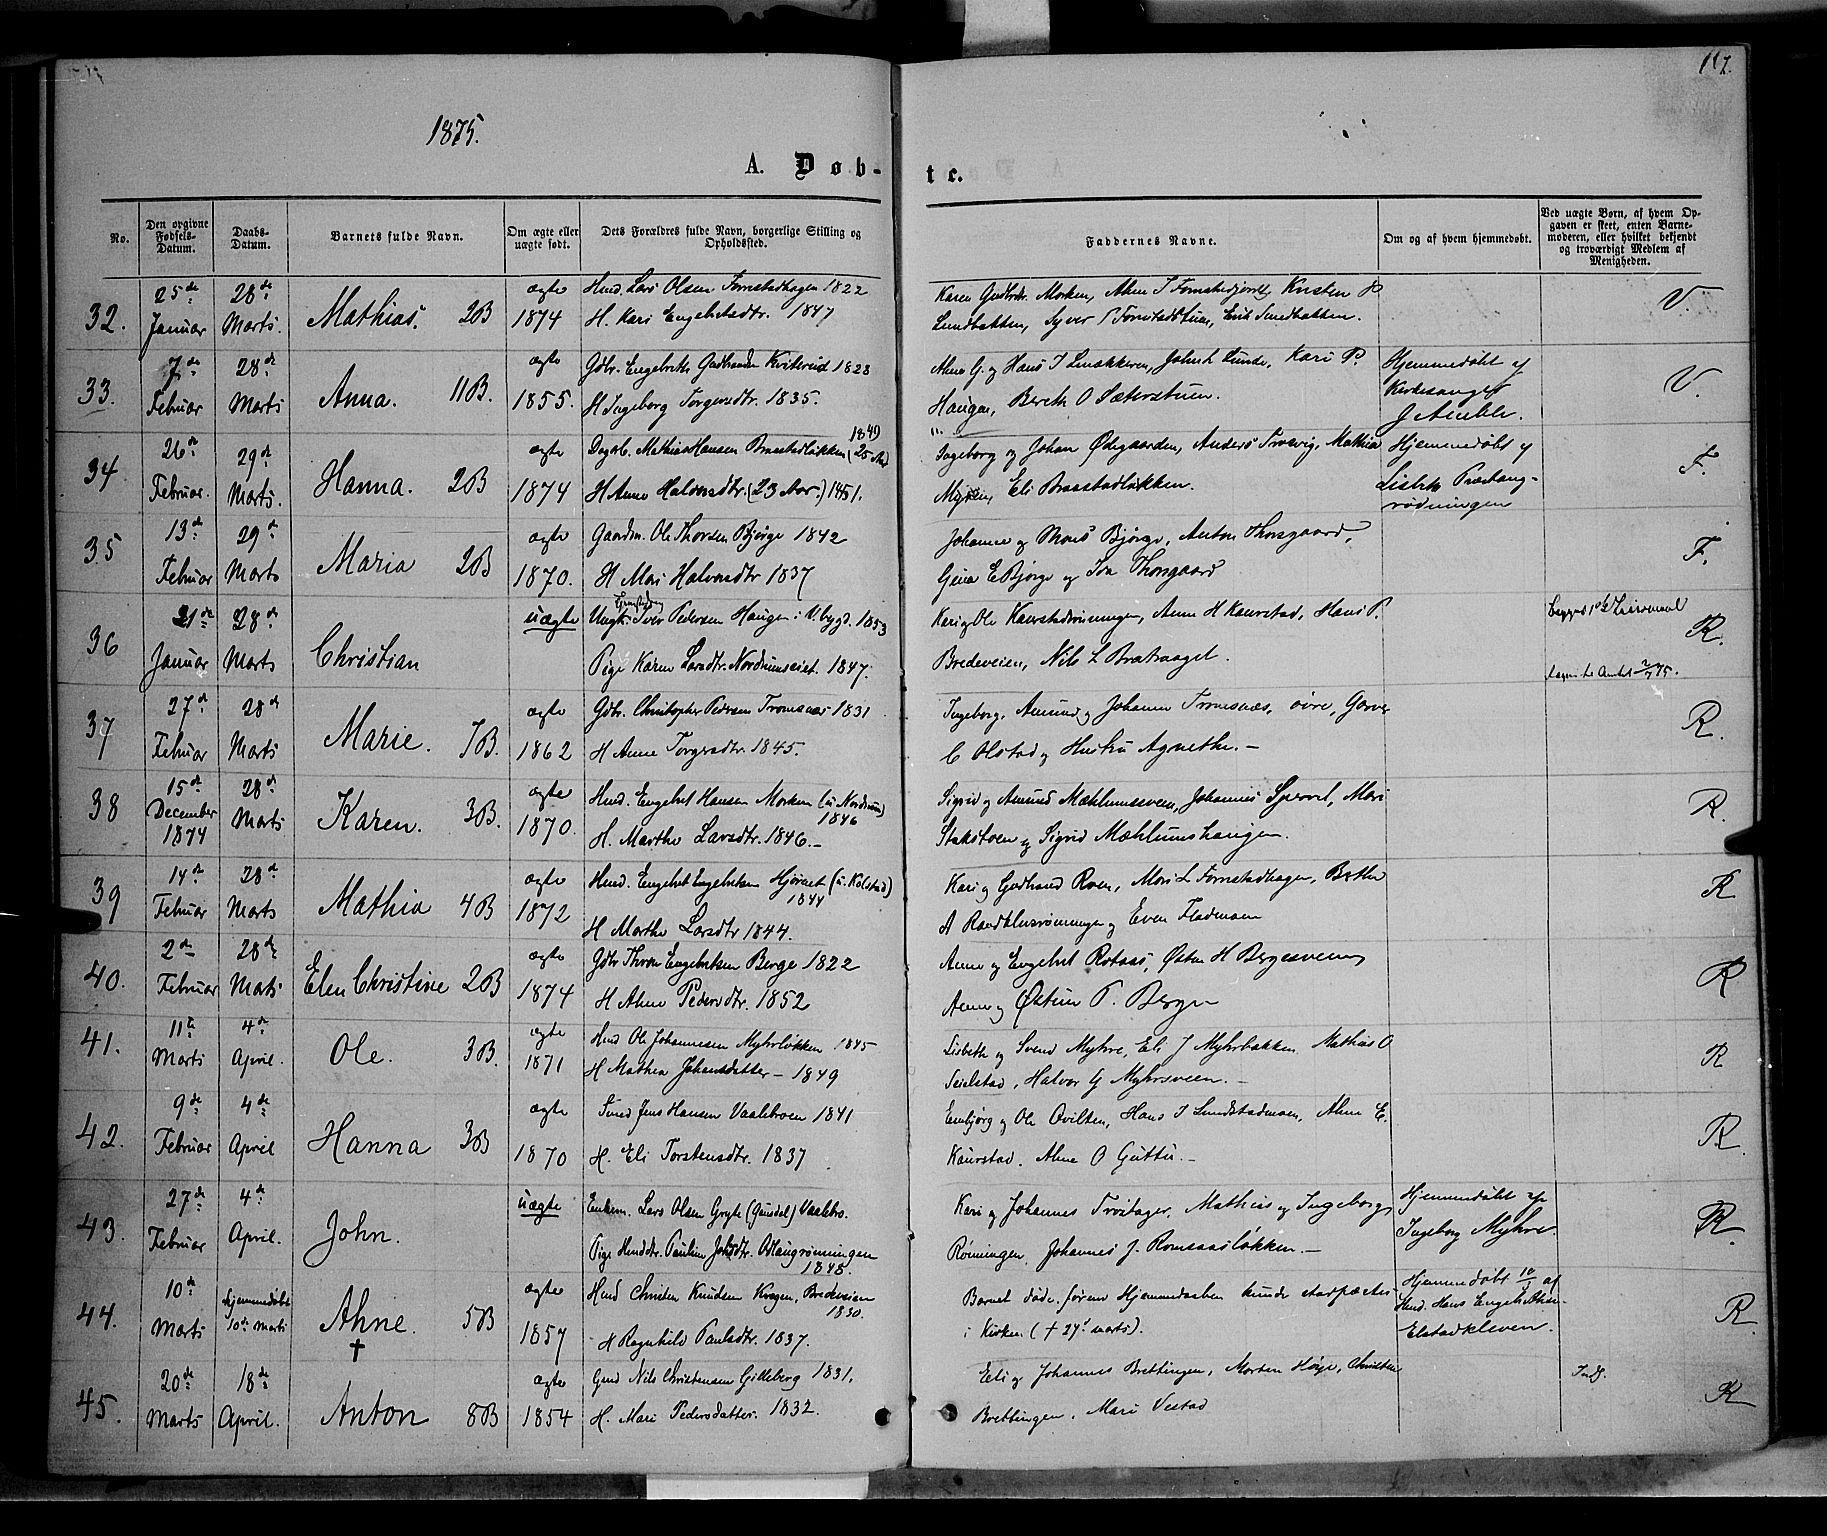 1875.
117.
A. Døb-
te.
No.
Den opgivne Fødsels-Datum.
Daabs-Datum.
Barnets fulde Navn.
Om ægte eller uægte født.
Dets Forældres fulde Navn, borgerlige Stilling og Opholdssted.
Faddernes Navne.
Om og af hvem hjemmedøbt.
Ved uægte Børn, af hvem Opgaven er skeet, enten Barnemoderen, eller hvilket bekjendt og troværdigt Medlem af Menigheden.
32. 25de Januar 28de Marts. Mathias. 2B ægte 1874
Husd. Lars Olsen Fornstadhagen 1822
H. Kari Engebretsdtr. 1847
Karen Gudbr. Morken,
Lundbakken, Syver Fornstadstuen, Erik Lundbakken.
V.
33. 7de Februar 28de Marts Anna. 11B. ægte 1855.
Gdbr. Engebreth Gudbrandsen Kvisterud 1828
H Ingeborg Torgersdtr. 1835.
Haugen, Bereth O Sæterstuen.
Hjemmedøbt af
Kirkesanger
J Amble.
V.
34 26de Februar. 29de Marts. Hanna. 2B ægte 1874
Dagsl. Mathias Hansen Braastadløkken (25 Aar) 1849
H Anne Halvorsdtr. (23 Aar.) 1851.
Ingeborg og Johan Ødegaarden, Anders Trosvig, Mathias
Myren, Eli Braastadløkken.
Hjemmedøbt af
Lisbeth Præstang-
rødningen
F.
35 13de Februar 29de Marts Maria 2B ægte 1870.
Gaardm. Ole Thorsen Bjørge 1842
H Mari Halvorsdtr 1837
Johanne og Mons Bjørge, Anton Thorsgaard,
Gina E Bjørge og Iva Thorsgaard
F.
36 21de Januar 28de Marts Christian uægte
Ungk. Iver Pedersen Haugen i V. bygd. 1853
Pige Karen Larsdtr. Nordrumseiet. 1847.
Kari og Ole Kaurstadrønningen, Anne H Kaurstad, Hans P.
Bredeveien, Nils L Bratvaaget.
Begges 1ste Leiermaal
R.
37 27de Februar 28de Marts Marie. 7B. ægte 1862
Gdbr. Christopher Pedersen Tromsnæs 1831
H Anne Torgersdtr. 1845.
Ingeborg, Amund og Johanne Tromsnæs, øvre,
C Olstad og Hustru Agnethe. -
R.
38 15de December 1874 28de Marts Karen. 3B. ægte 1870.
Husd. Engebret Hansen Morken (u Nordrum) 1846
H. Marthe Larsdtr. 1846. -
Sigrid og Amund Mæhlumsveen, Johannes Spervel, Mari
Stakstoen og Sigrid Mæhlumshaugen.
R.
39 14de Februar 28de Marts Mathia 4B ægte 1872
Husd. Engebret Engebretsen Hjørnet (u. Kolstad) 1844
H Marthe Larsdtr 1844.
Kari og Gudbrand Roen, Mari L Fornstadhagen, Berthe
A Randklevrønningen og Even Flademoen
R
40. 2den Februar 28de Marts Elen Christine 2B ægte 1874
Gdbr Thron Engebretsen Berge 1822
H Ahne Pedersdtr. 1852
Anne og Engebret Rotaas, Østen H Bergesveen
Anne og Østen P. Berge
R
41. 11te Marts 4de April. Ole. 3B. ægte 1871
Husd Ole Johannesen Myhrløkken 1845
H Mathea Johansdatter - 1849
Lisbeth og Svend Myhre, Eli J Myhrbakken, Mathias O
Seielstad, Halvor G Myhrsveen. -
R
42. 9de Februar 4de April Hanna 3B ægte 1870
Smed Jens Hansen Vaalebroen 1841
H. Eli Torstensdtr. 1837
Embjørg og Ole Qvilten, Hans J Lundstadmoen, Ahne E.
Kaurstad. Ahne O Guttu. -
R.
43. 27de Februar 4de April. John. uægte
Enkem. Lars Olsen Gryte (Gausdal) Vaalebro.
Pige Husdtr. Pauline Johsdtr. Østhaugrønningen 1848.
Kari og Johannes Trøitager, Mathias og Ingeborg
Rønningen, Johannes J. Romsaasløkken. -
Hjemmedøbt af
Ingeborg Myhre
R.
44. 10de Marts hjemmedøbt 10de marts Ahne. † 5B ægte 1857
Husd Christen Knudsen Kragen, Bredeveien 1830.
H Ragnhild Paulsdtr. 1837.
Barnet døde, førend Hjemmedaaben kunde stadfæstes
i Kirken (+ 27de marts).
Hjemmedøbt 10/3 af
Husd. Hans Engebrethsen
Elstadkleven.
R.
45. 20de Marts 18de April. Anton 8B ægte 1854
Gmd Nils Christensen Gilleberg 1831.
H. Mari Pedersdatter. 1832.
Eli og Johannes Brettingen, Morten Høye, Christen
Brettingen, Mari Vestad
Indf.
R